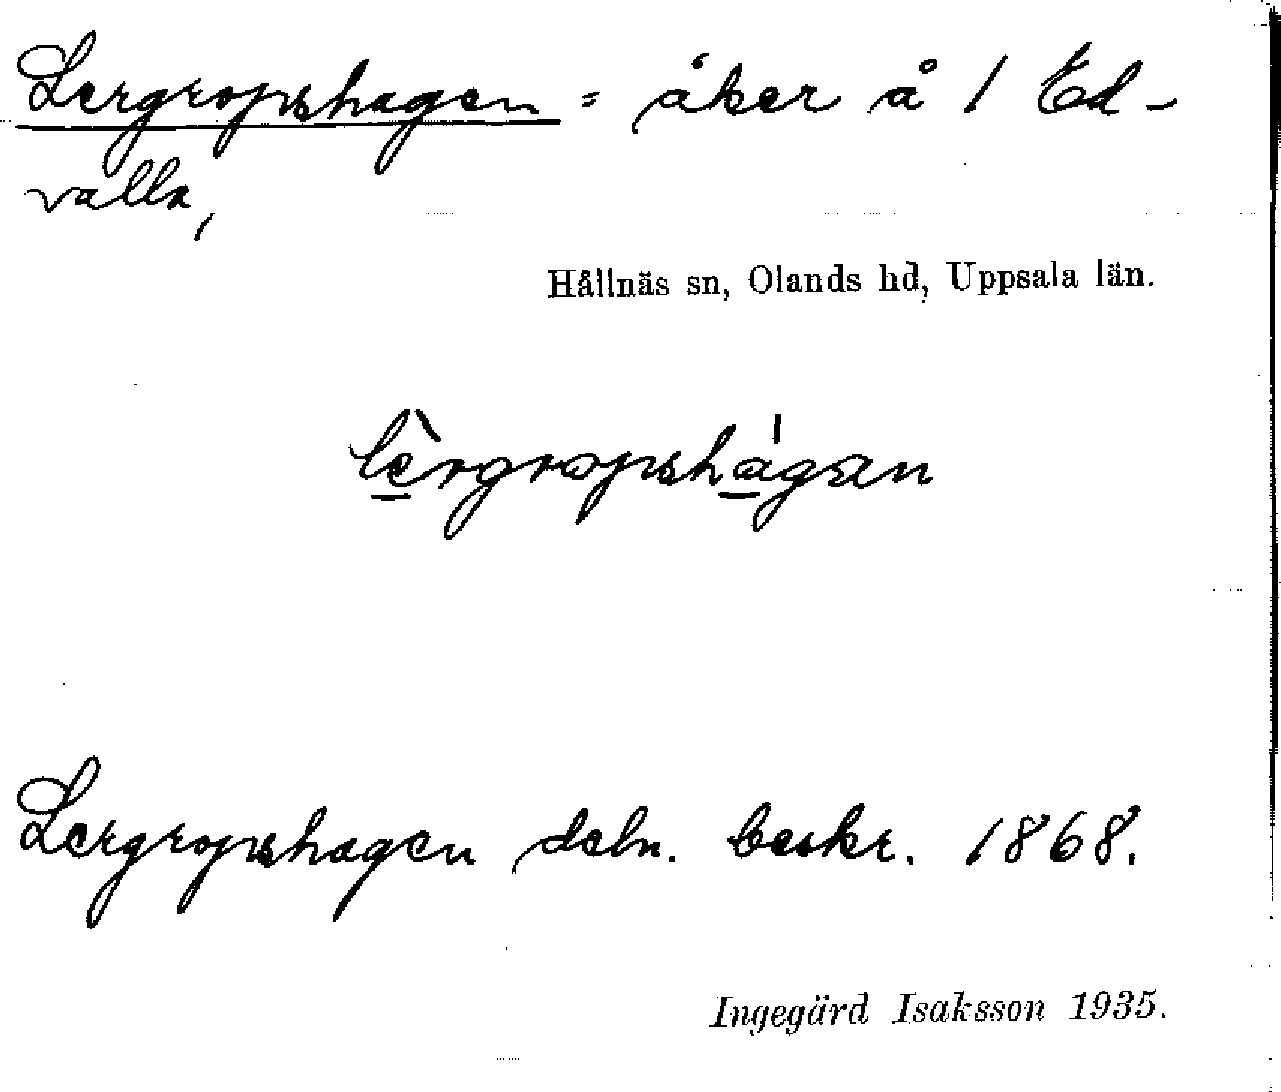 Lergropshagen = åker å 1 Ed-
valla,
Hållnäs sn, Olands hd, Uppsala län.
lèrgropshágan
Lergropshagen deln. beskr. 1868.
Ingegärd Isaksson 1935.